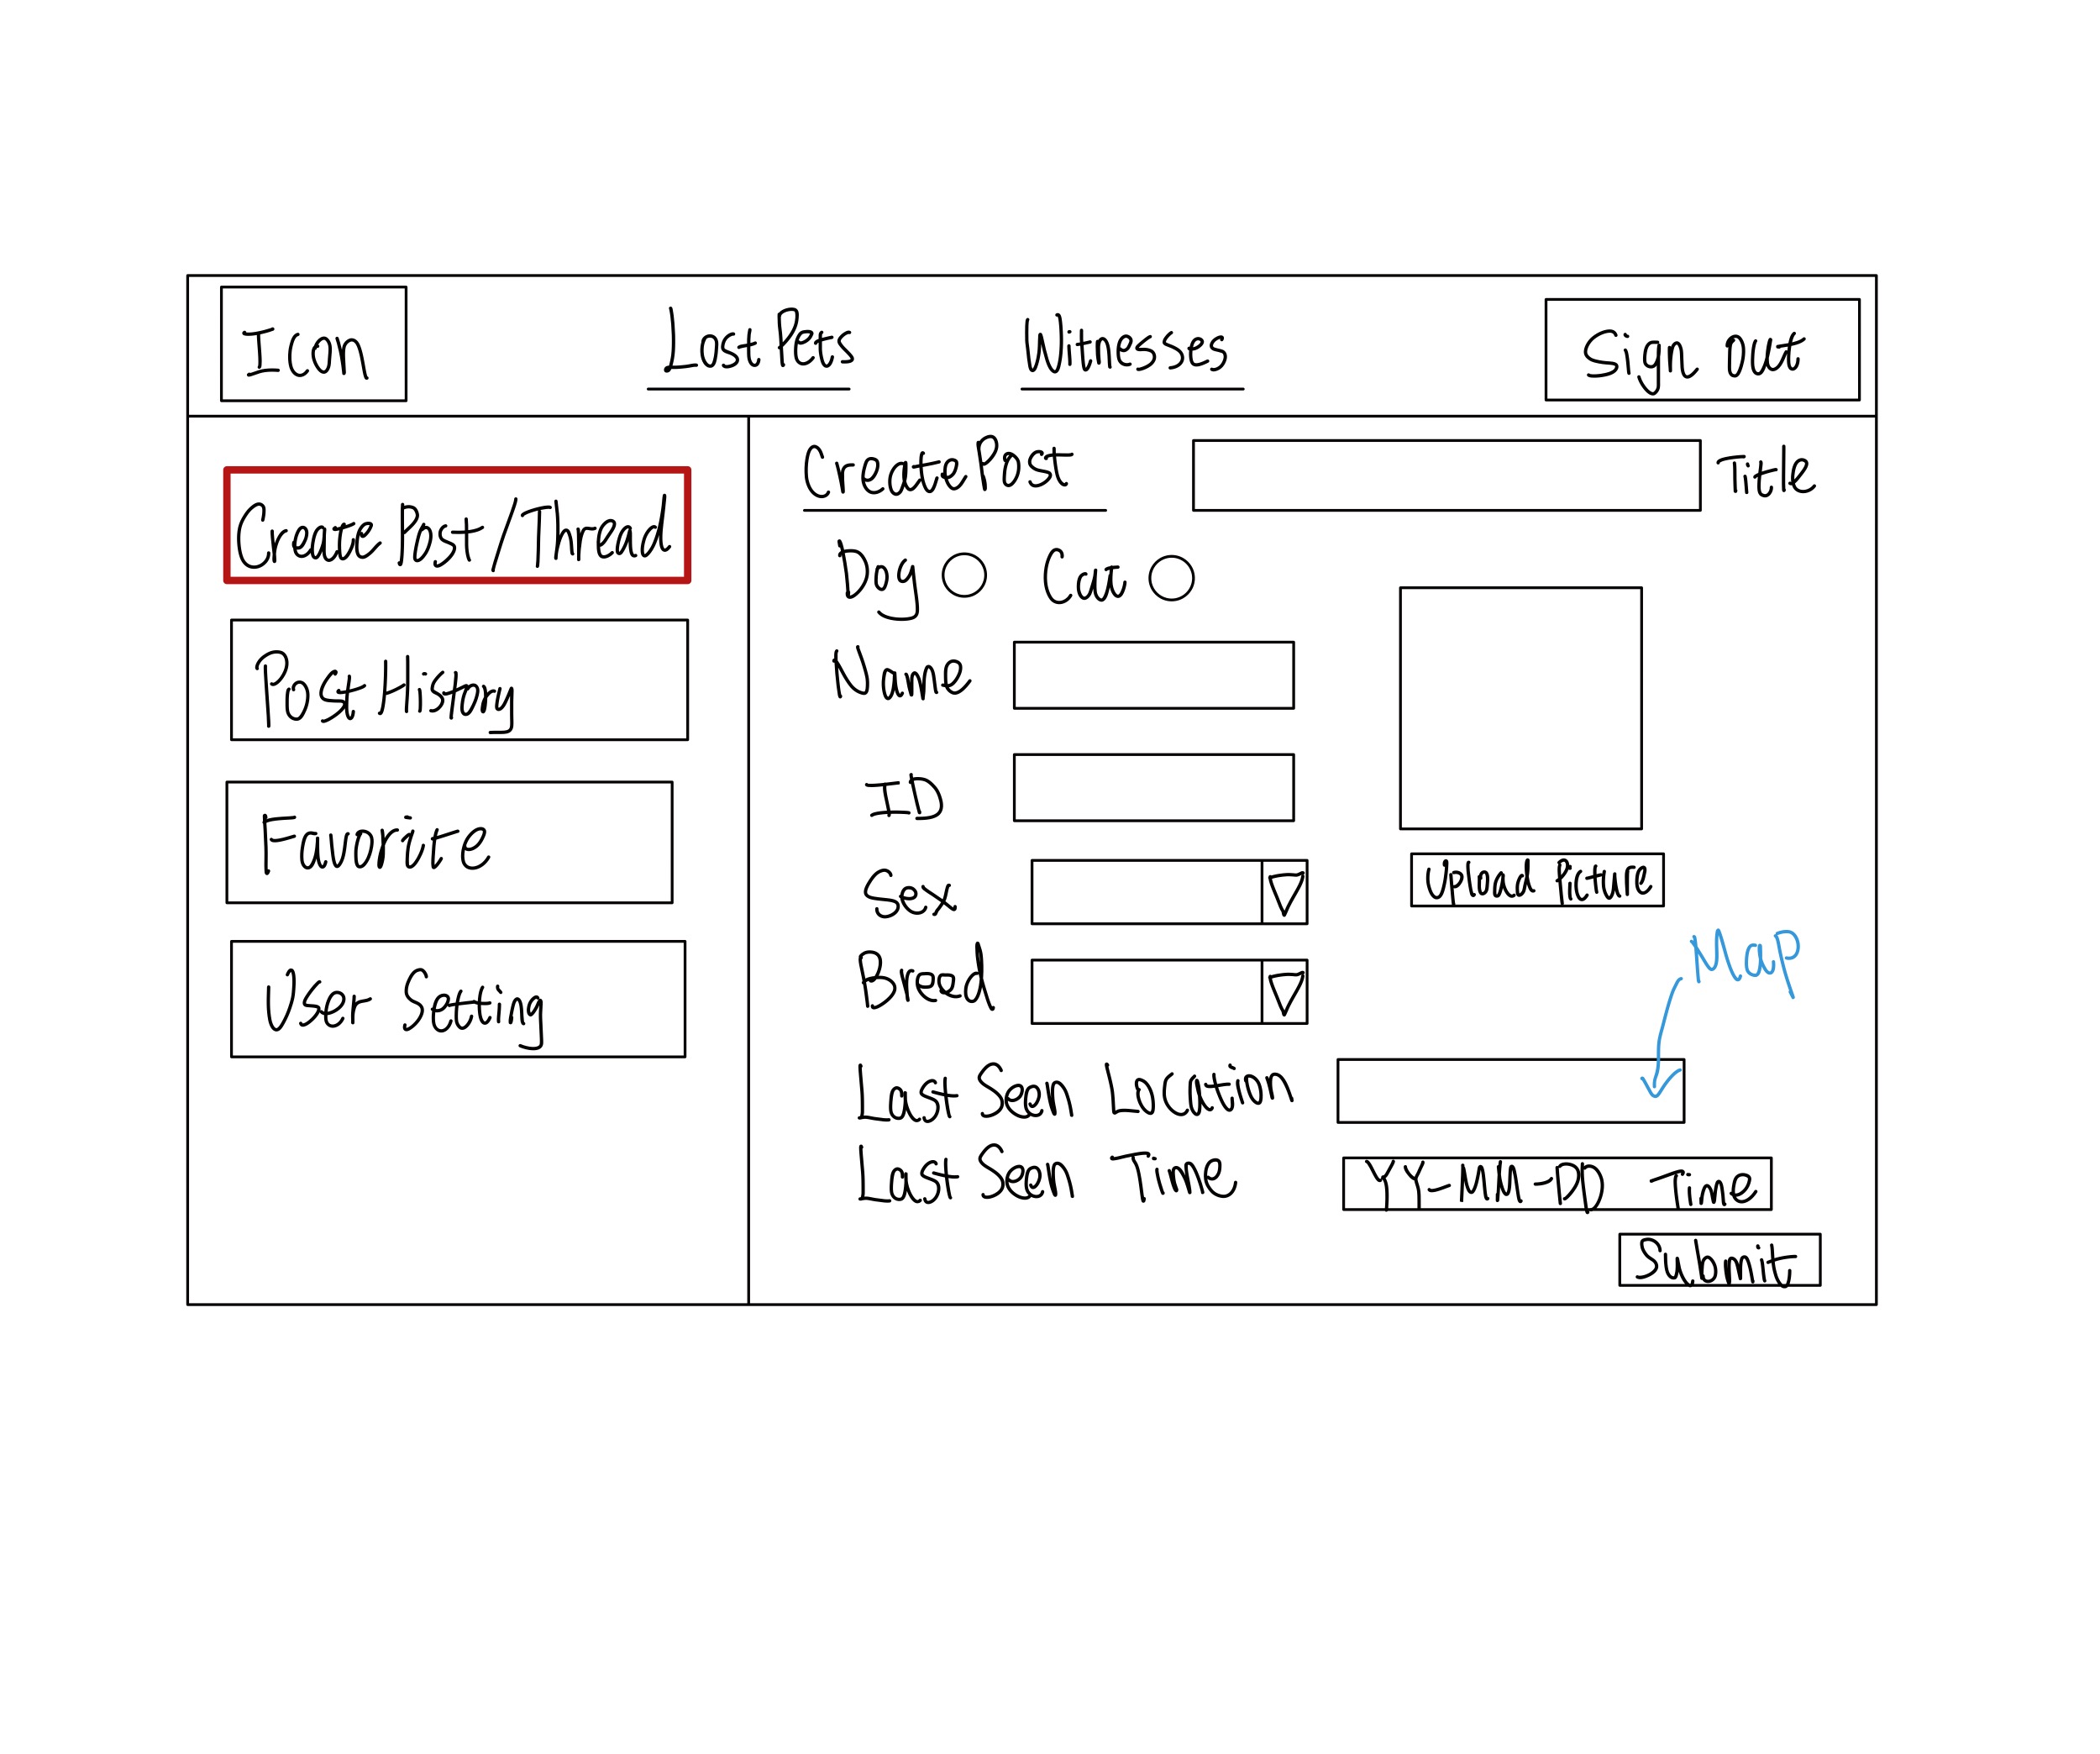 Icon
Lost Pets
Witnesses
Sign out
Create Post/Thread
Post History
Favorite
User Setting
Create Post
Title
Dog
Cat
Name
ID
Sex
Breed
Upload Picture
Map
Last Seen Location
Last Seen Time
YY-MM-DD Time
Submit